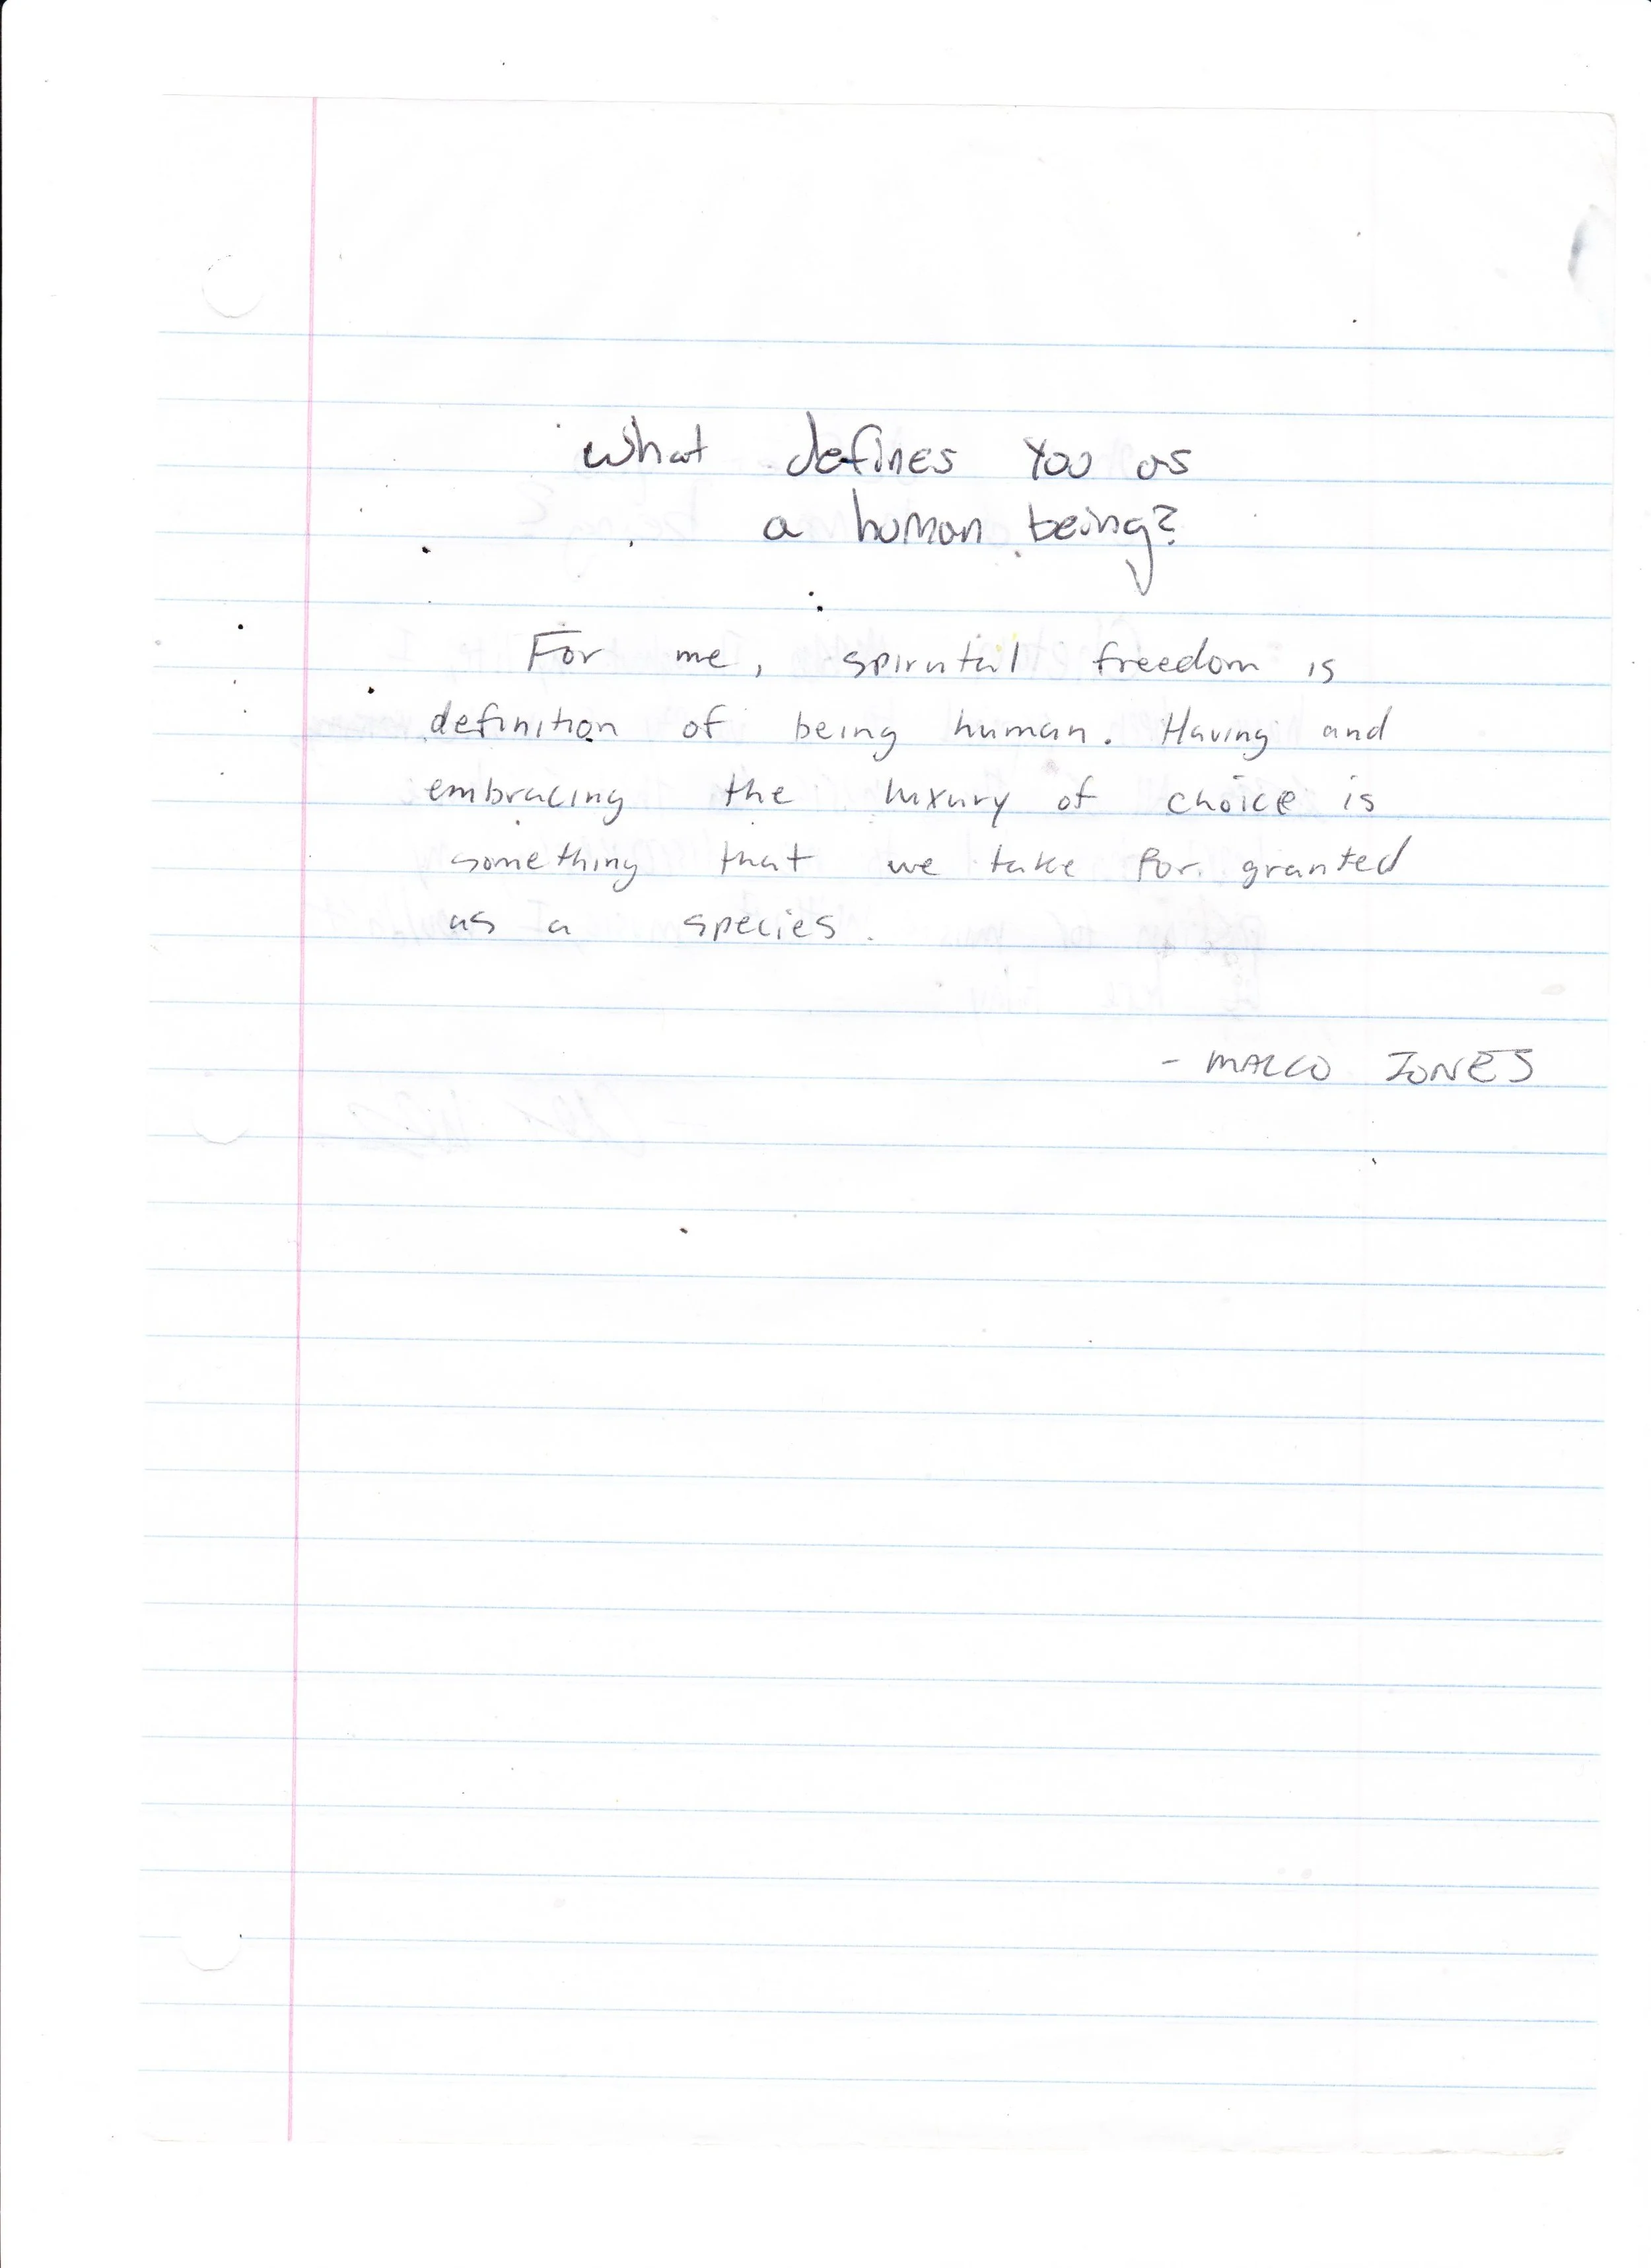 What defines You as
a human being?
For me, spirutal freedom is
definition of being human. Having and
embracing the luxury of choice is
something that we take for granted
as a species.
- MARCO JONES